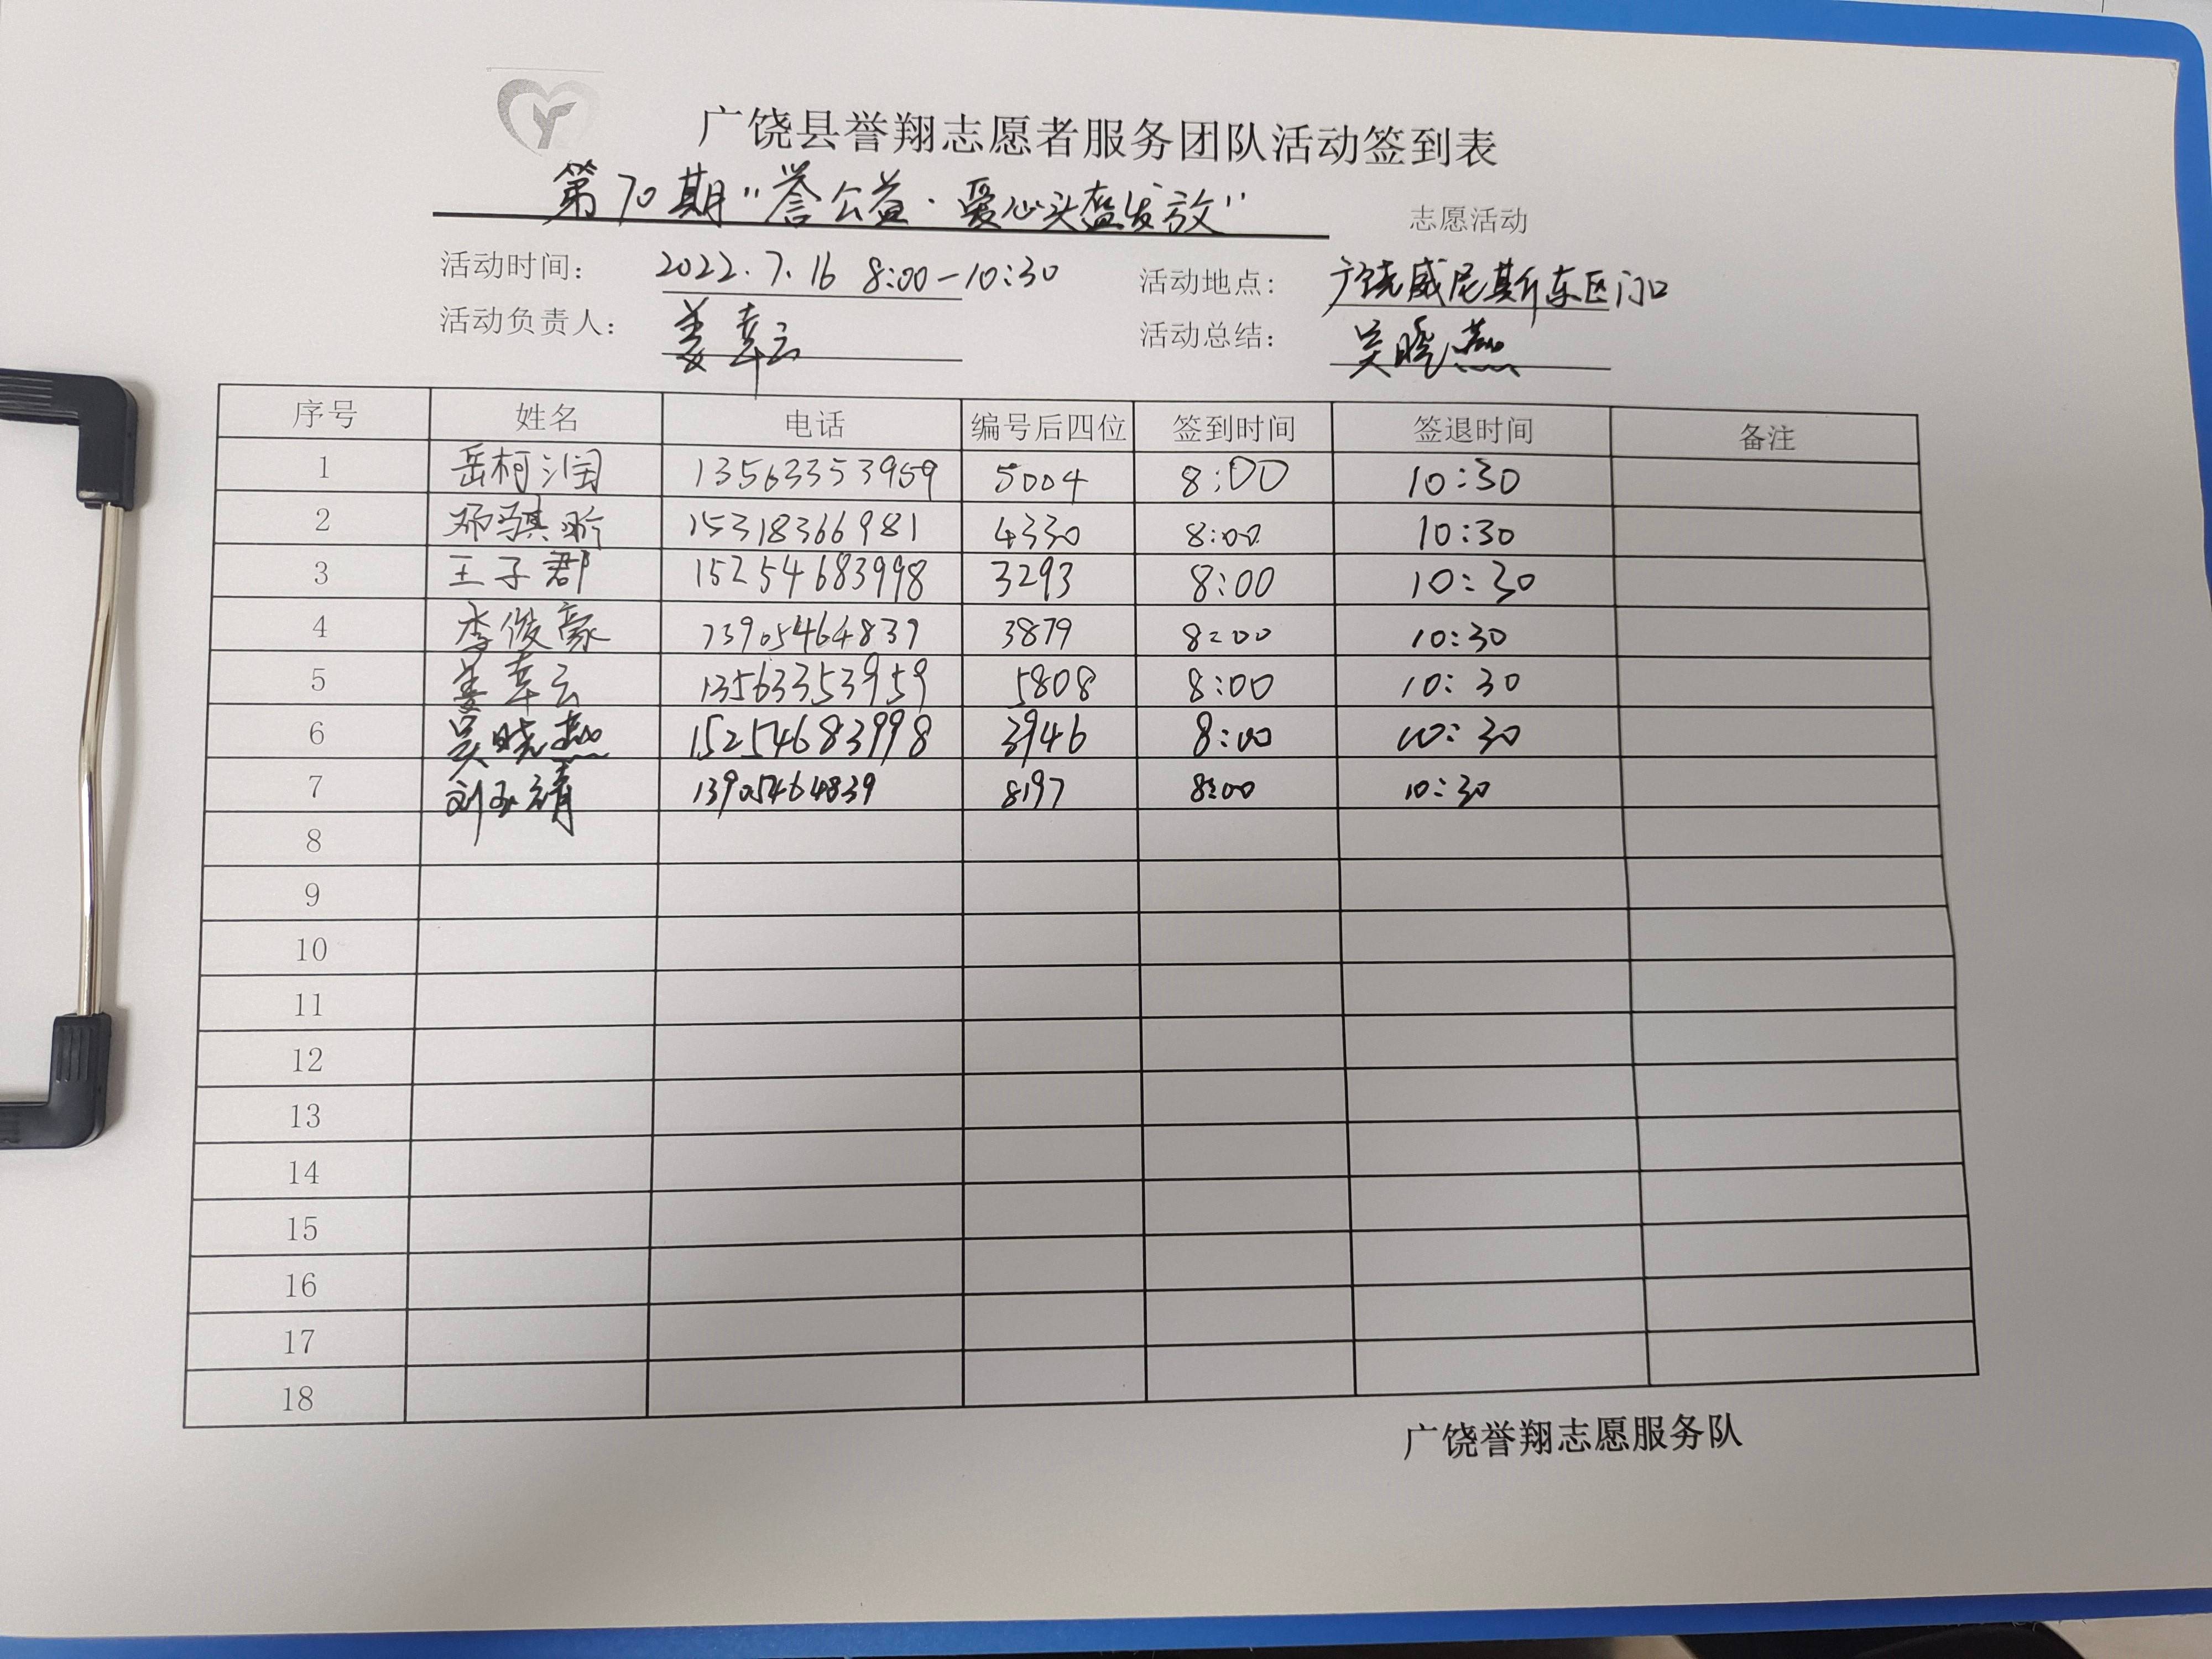 广饶县誉翔志愿者服务团队活动签到表
第70期"誉公益·爱心头盔发放" 志愿活动
活动时间: 2022.7.16 8:00-10:30 活动地点: 广饶威尼斯东区门口
活动负责人: 姜幸云 活动总结: 吴晓燕
序号 姓名 电话 编号后四位 签到时间 签退时间 备注
1 岳柯润 13563353959 5004 8:00 10:30
2 邓骐 15318366981 4330 8:00 10:30
3 王子郡 15254683998 3293 8:00 10:30
4 李俊豪 13905464839 3879 8:00 10:30
5 姜幸云 13563353959 5808 8:00 10:30
6 吴晓燕 15254683998 3946 8:00 10:30
7 刘玉靖 13905464839 8197 8:00 10:30
8
9
10
11
12
13
14
15
16
17
18
广饶誉翔志愿服务队